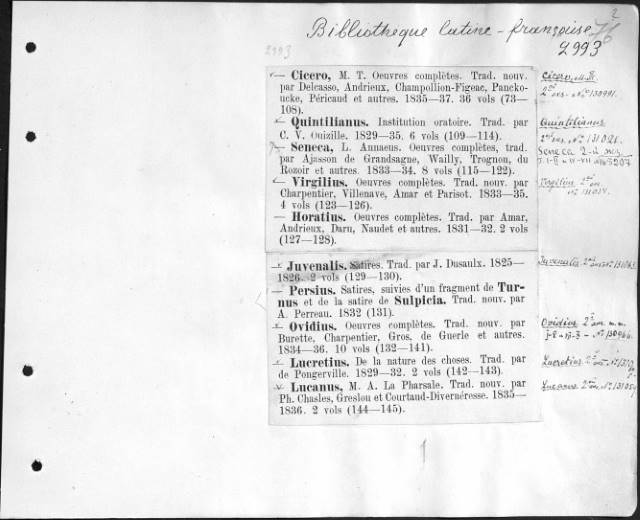 2
Bibliothèque latine-françoise 76
2993
2993
— Cicero, M. T. Oeuvres complètes. Trad. nouv.
par Delcasso, Andrieux, Champollion-Figeac, Panckoucke, Péricaud et autres. 1835—37. 36 vols (73—
108).
— Quintilianus. Institution oratoire. Trad. par
C. V. Ouizille. 1829—35. 6 vols (109—114).
— Seneca, L. Annaeus. Oeuvres complètes, trad.
par Ajasson de Grandsagne, Wailly, Trognon, du
Rozoir et autres. 1833—34. 8 vols (115—122).
— Virgilius. Oeuvres complètes. Trad. nouv. par
Charpentier, Villenave, Amar et Parisot. 1833—35.
4 vols (123—126).
— Horatius. Oeuvres complètes. Trad. par Amar,
Andrieux, Daru, Naudet et autres. 1831—32. 2 vols
(127—128).
— Juvenalis. Satires. Trad. par J. Dusaulx. 1825—
1826. 2 vols (129—130).
— Persius. Satires, suivies d'un fragment de Tur-
nus et de la satire de Sulpicia. Trad. nouv. par
A. Perreau. 1832 (131).
— Ovidius. Oeuvres complètes. Trad. nouv. par
Burette, Charpentier, Gros, de Guerle et autres.
1834—36. 10 vols (132—141).
— Lucretius. De la nature des choses. Trad. par
de Pongerville. 1829—32. 2 vols (142—143).
— Lucanus, M. A. La Pharsale. Trad. nouv. par
Ph. Chasles, Greslou et Courtaud-Divernéresse. 1835—
1836. 2 vols (144—145).
Cicero, M. T.
2d ex. - No 130991.
Quintilianus
2d ex. No 131021.
Seneca 2-d
Virgilius 2d ex.
Juvenalis 2d ex. No
Ovidius 2d ex.
Lucretius 2d ex. No
Lucanus 2d ex. No
1